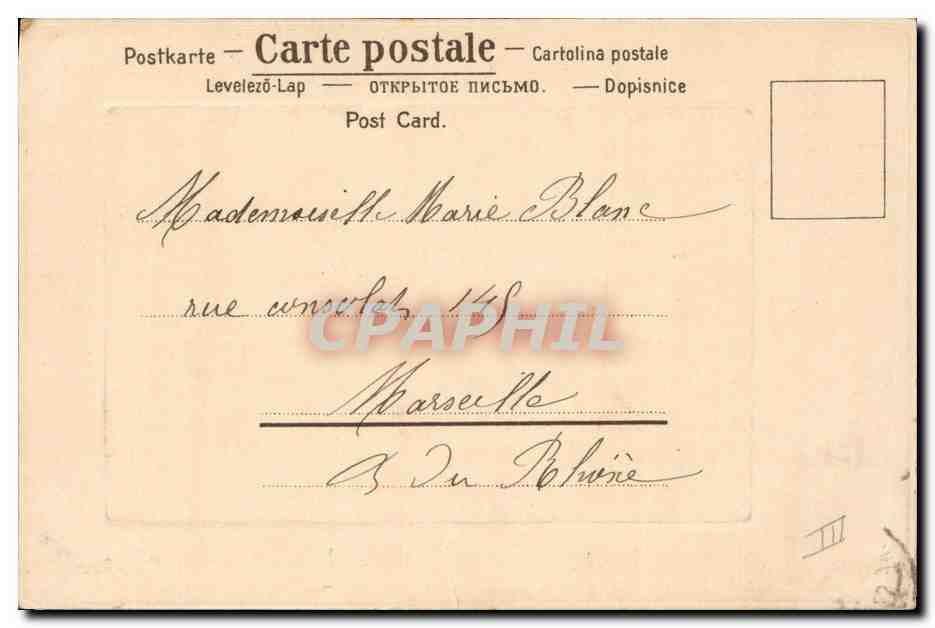 Postkarte – Carte postale – Cartolina postale
Levelező-Lap — ОТКРЫТОЕ ПИСЬМО. — Dopisnice
Post Card.
Mademoiselle Marie Blanc
rue consolat 145
CPAPHIL
Marseille
B du Rhône
III